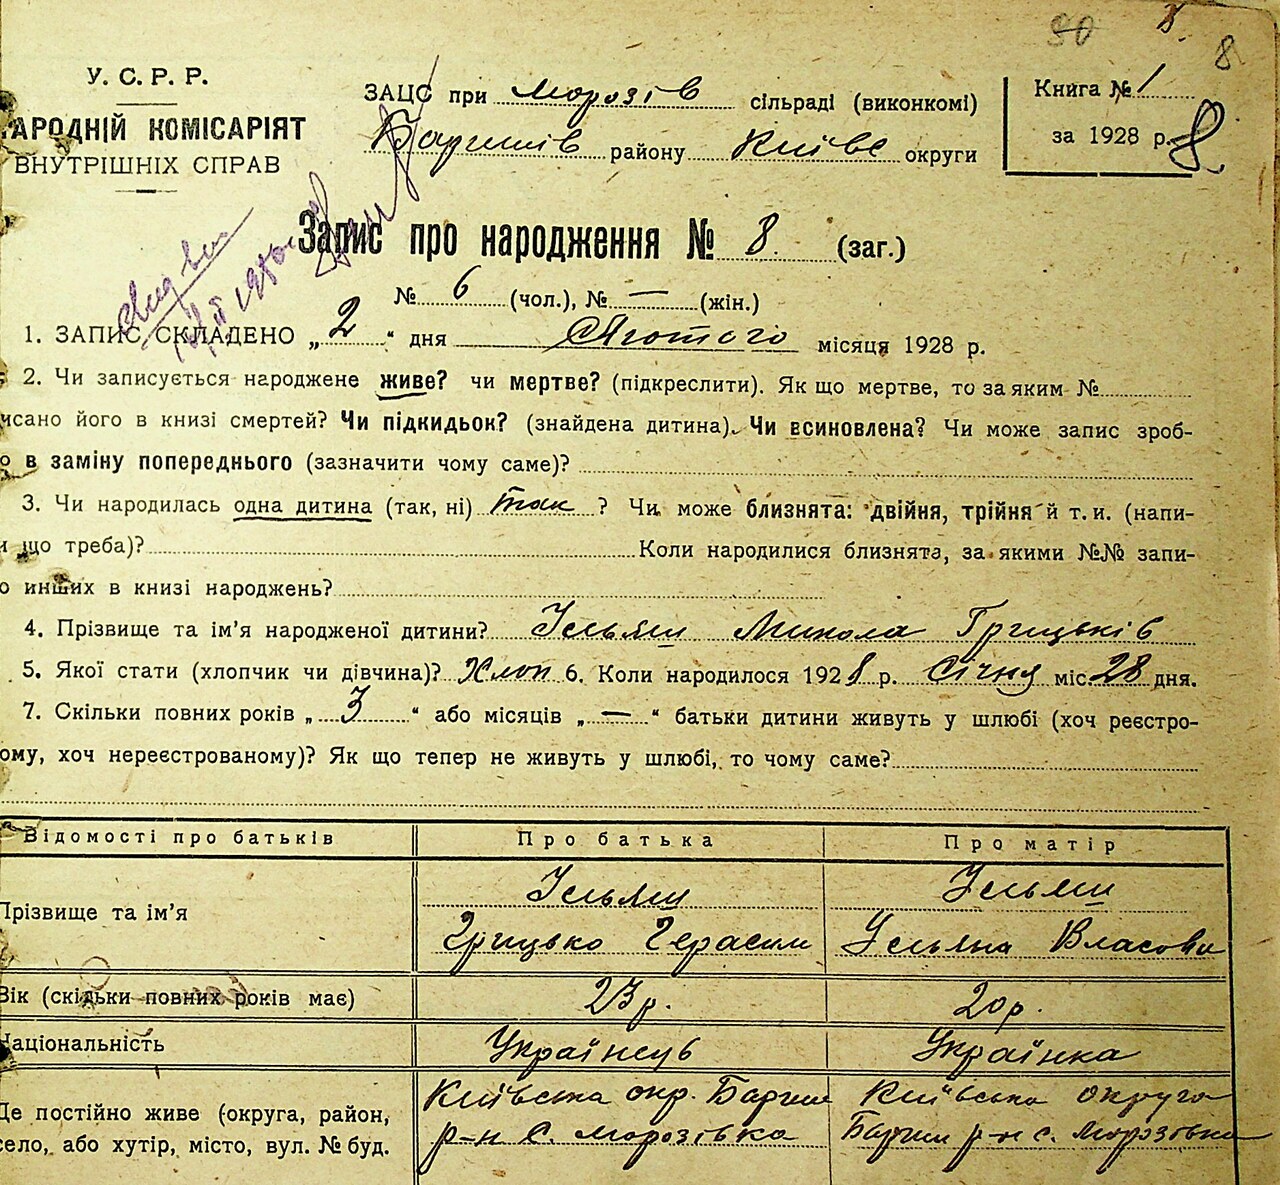 90 8
У. С. Р. Р.
АРОДНІЙ КОМІСАРІЯТ
ВНУТРІШНІХ СПРАВ
ЗАЦС при Морозів сільраді (виконкомі)
Баришів района району Київс округи
Книга № 1
за 1928 р. 8
Запис про народження № 8. (заг.)
№ 6 (чол.), № — (жін.)
1. ЗАПИС СКЛАДЕНО „ 2 “ дня Лютого місяця 1928 р.
2. Чи записується народжене живе? чи мертве? (підкреслити). Як що мертве, то за яким №
исано його в книзі смертей? Чи підкидьок? (знайдена дитина). Чи всиновлена? Чи може запис зроб-
о в заміну попереднього (зазначити чому саме)?
3. Чи народилась одна дитина (так, ні) так ? Чи може близнята: двійня, трійня й т. и. (напи-
и що треба)? Коли народилися близнята, за якими №№ запи-
о инших в книзі народжень?
4. Прізвище та ім’я народженої дитини? Ісльяш Микола Грицьків
5. Якої стати (хлопчик чи дівчина)? Хлоп 6. Коли народилося 1928 р. Січня міс. 28 дня.
7. Скільки повних років „ 3 “ або місяців „ — “ батьки дитини живуть у шлюбі (хоч реєстро-
ому, хоч нереєстрованому)? Як що тепер не живуть у шлюбі, то чому саме?
Відомості про батьків Про батька Про матір
Прізвище та ім’я
Ісльяш Ісльяш
Грицько Герасим Ульяна Власовн
Вік (скільки повних років має) 23 р. 20 р.
Національність Українець Українка
Де постійно живе (округа, район, Київська окр. Бариш Київська округа
село, або хутір, місто, вул. № буд. р-н с. Морозівка Бариш р-н с. Морозівка